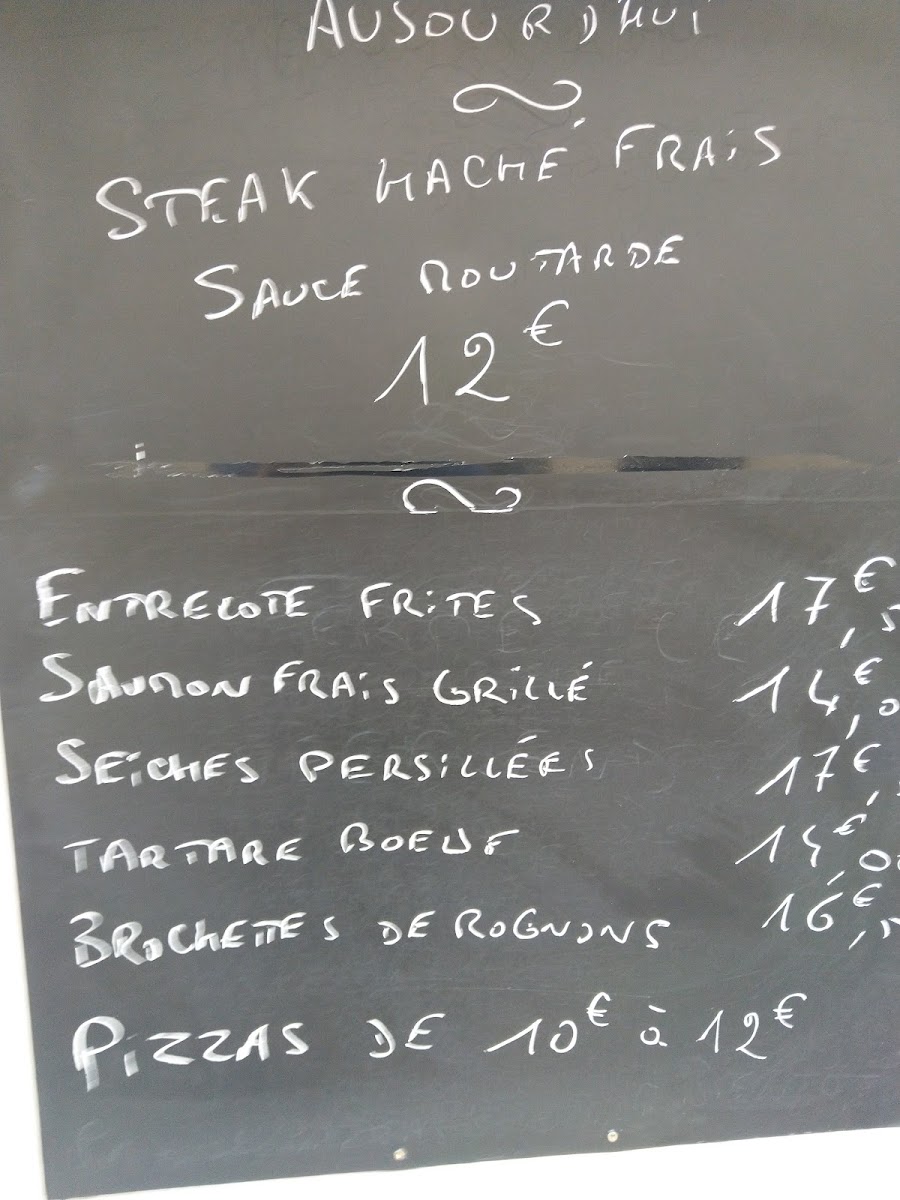 AUJOURD'HUI
STEAK HACHÉ FRAIS
SAUCE MOUTARDE
12€
ENTRECOTE FRITES 17€,5
SAUMON FRAIS GRILLÉ 14€,0
SEICHES PERSILLÉES 17€,
TARTARE BOEUF 14€,00
BROCHETTES DE ROGNONS 16€,
PIZZAS DE 10€ à 12€